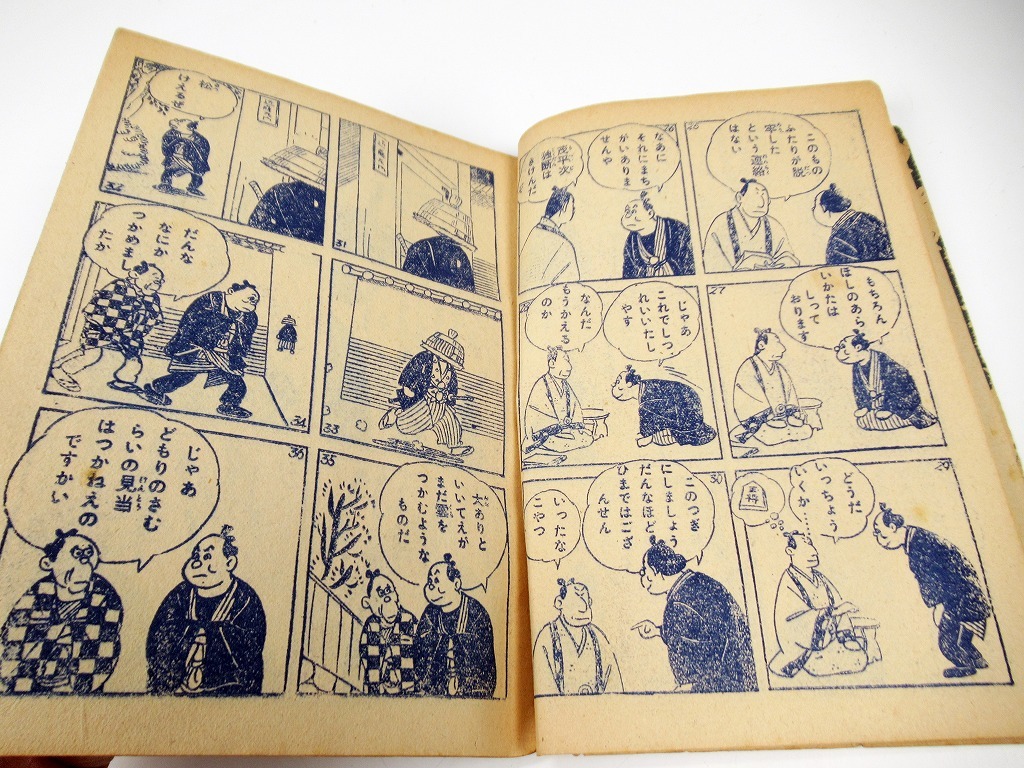 25
このもの
ふたりが説
宰した
という連絡
はない
26
なあに
それにまち
がいありま
せんや
茂平次
独断は
きけんだ
27
もちろん
ほしのあら
いかたは
しって
おります
28
じゃあ
これでしつ
れいいたし
やす
なんだ
もうかえる
のか
29
どうだ
いっちょう
いくか……
王将
30
このつぎ
にしましょう
だんなほど
ひまではござ
んせん
いったな
こやつ
31
32
松
けえるぜ
33
34
だんな
なにか
つかめまし
たか
35
大ありと
いいてえが
まだ雲を
つかむような
ものだ
36
じゃあ
どもりのさむ
らいの見当
はつかねえの
ですかい